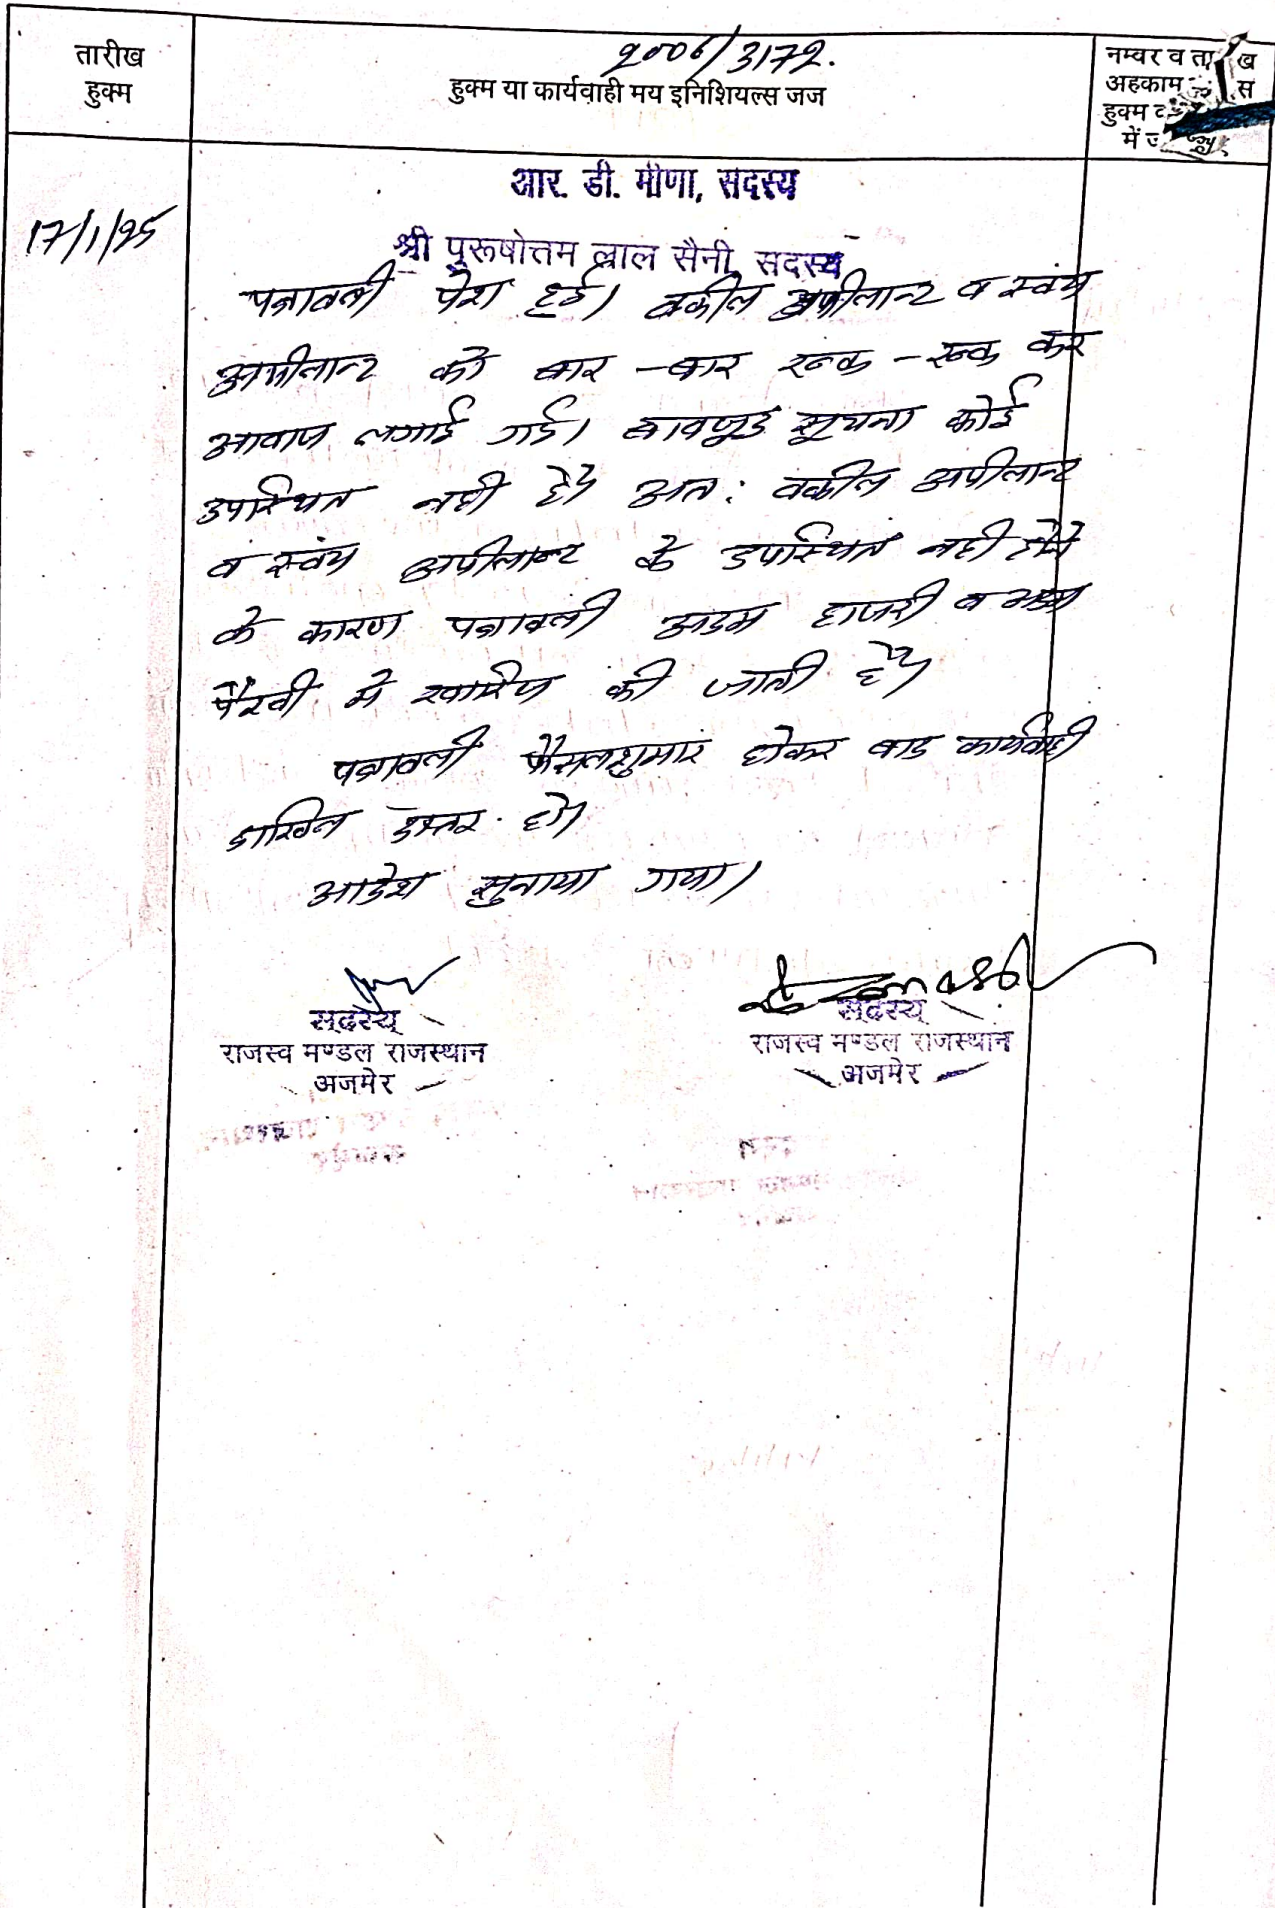 तारीख
हुक्म
2006/3172.
हुक्म या कार्यवाही मय इनिशियल्स जज
नम्बर व ता ख
अहकाम स
हुक्म
में
आर. डी. मीणा, सदस्य
17/1/25
श्री पुरूषोत्तम लाल सैनी, सदस्य
पत्रावली पेश हुई। वकील अपीलान्ट व स्वंय
अपीलान्ट को बार-बार रूक-रूक कर
आवाज लगाई गई। बावजूद सूचना कोई
उपस्थित नही है। अत: वकील अपीलान्ट
व स्वंय अपीलान्ट के उपस्थित नही होने
के कारण पत्रावली अदम हाजरी व अदम
पैरवी में खारिज की जाती है।
पत्रावली फैसलशुमार होकर बाद कार्यवाही
दाखिल दफ्तर हो।
आदेश सुनाया गया।
सदस्य
राजस्व मण्डल राजस्थान
अजमेर
सदस्य
राजस्व मण्डल राजस्थान
अजमेर